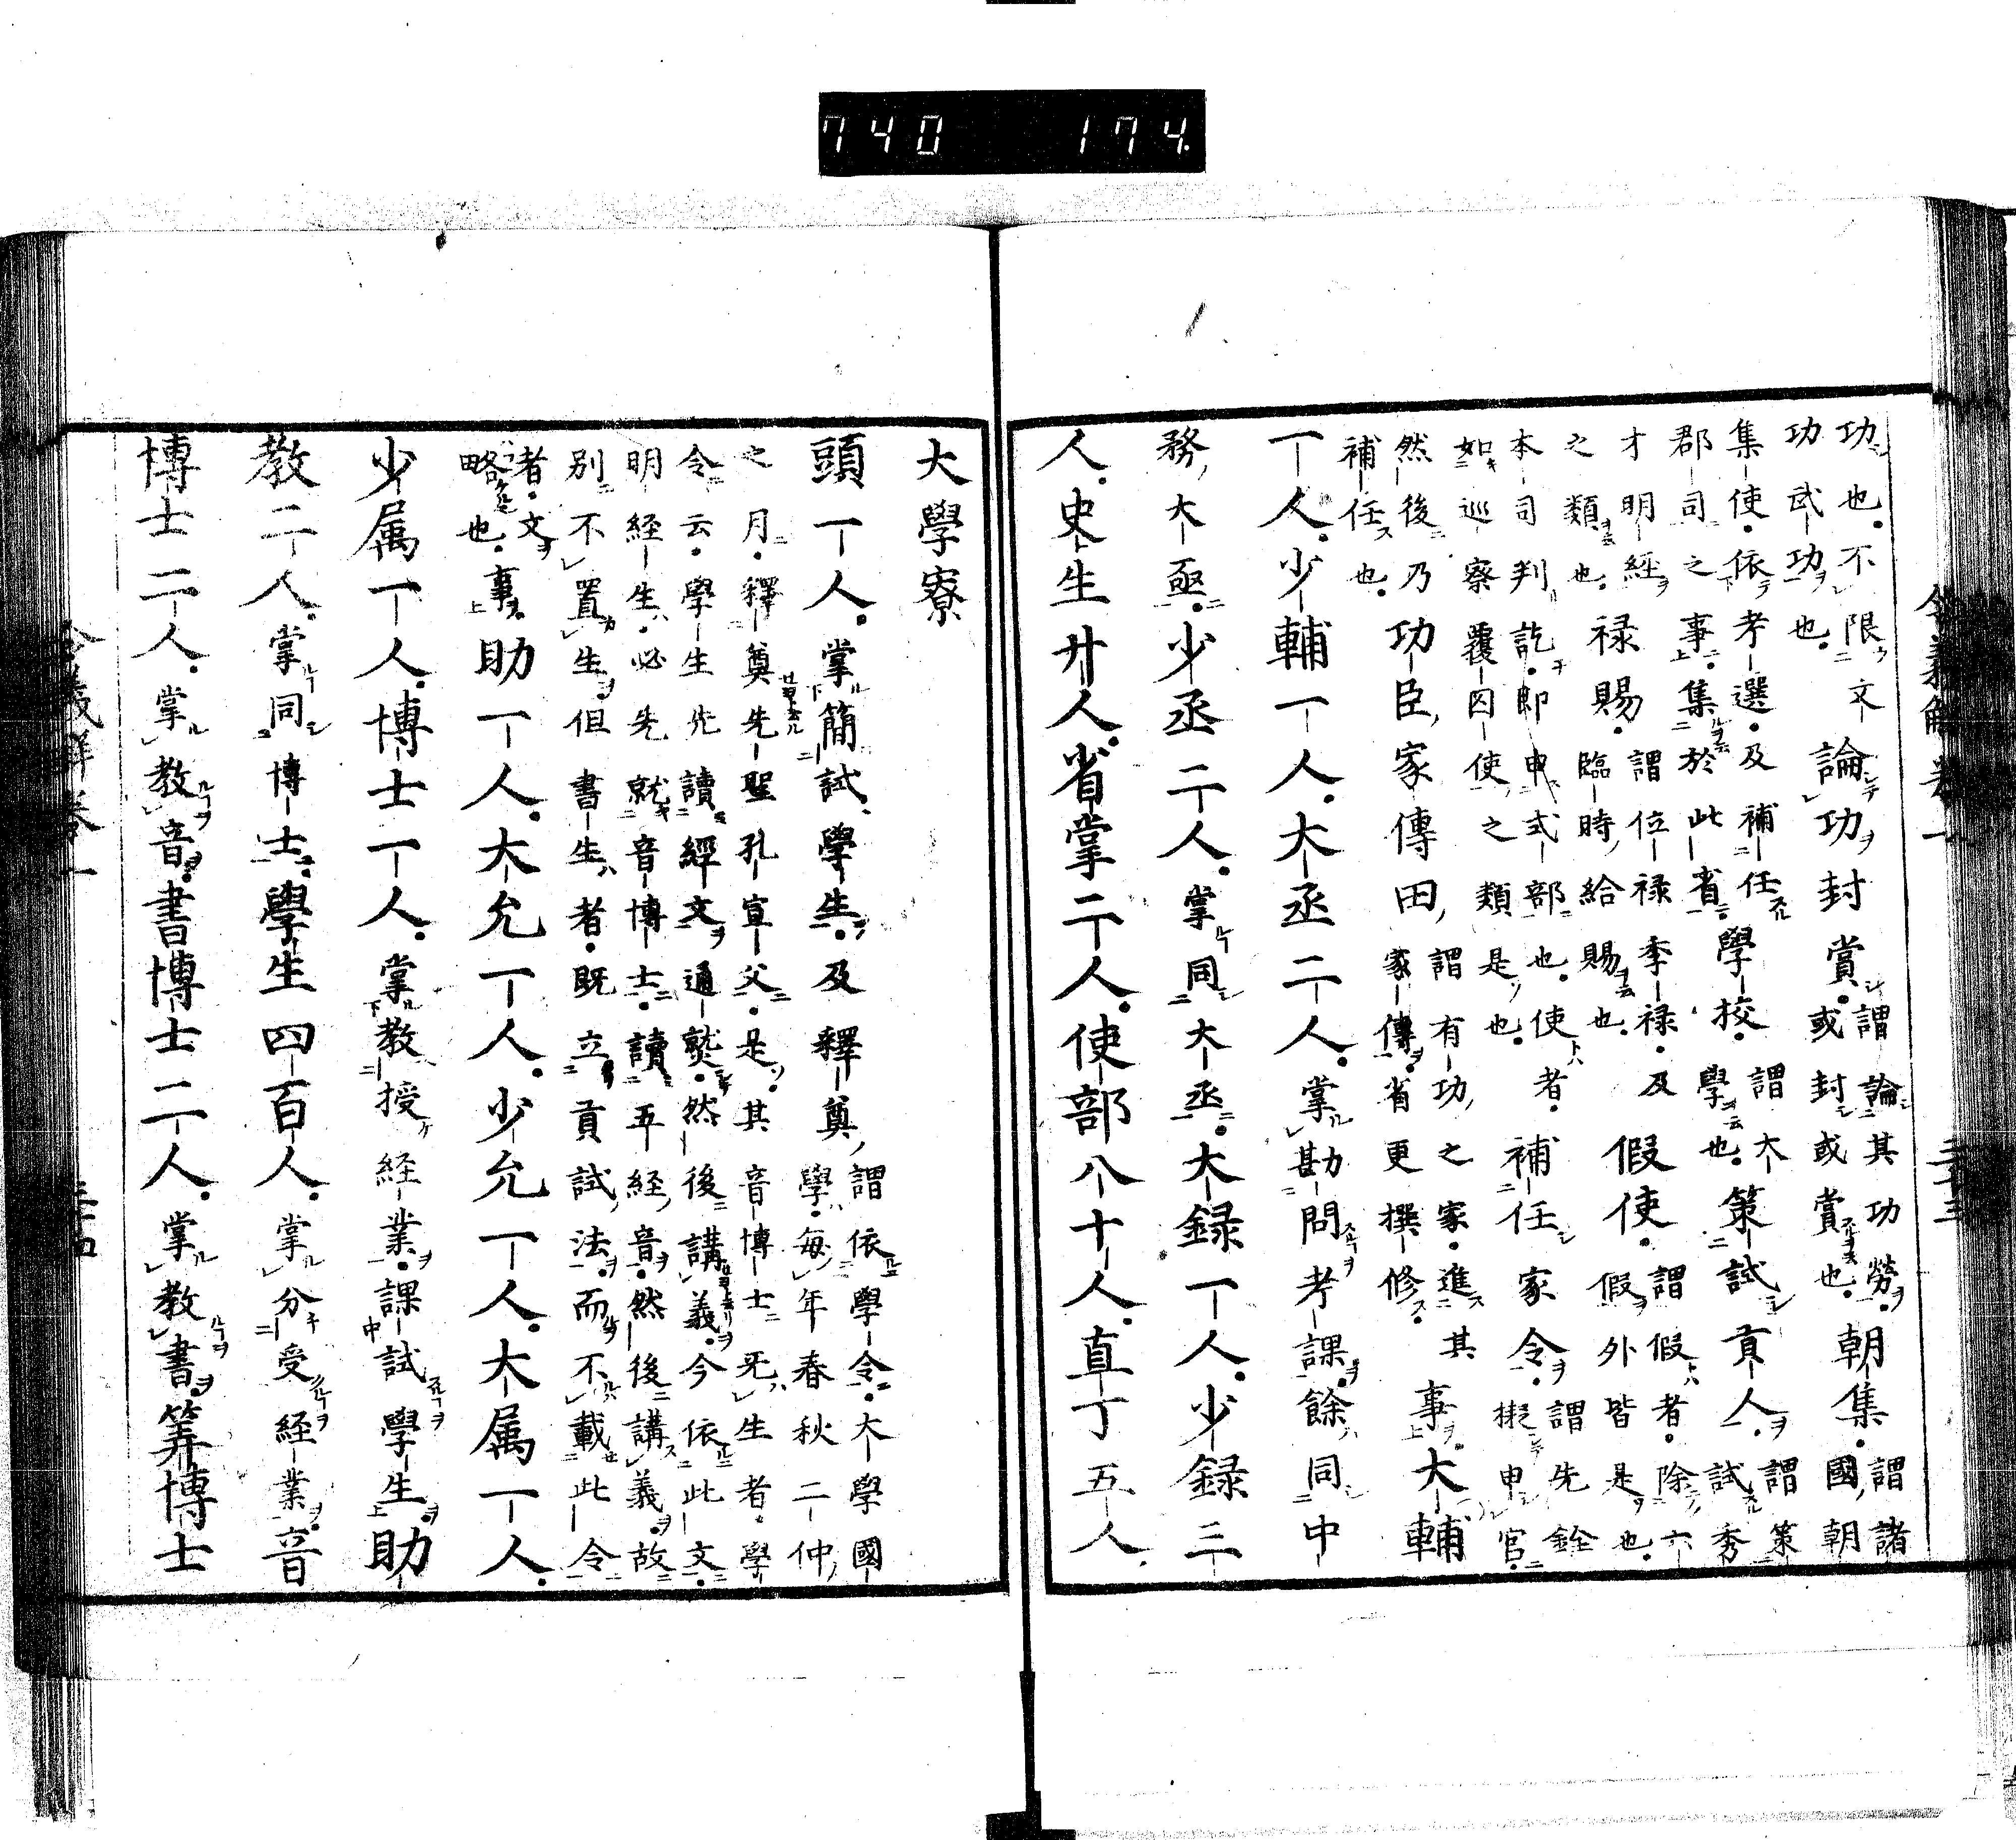 令義解 卷一 三十三
功也。不限文
功武功也。
論功封賞。
謂論其功勞。
或封或賞也。
朝集。
謂諸
國朝
集使。依考選。及補任
郡司之事。集於此省。
學校。
謂大
學也。
策試貢人。
謂策
試秀
才明經
之類也。
禄賜。
謂位禄季禄。及
臨時給賜也。
假使。
謂假者。除六
假外皆是也。
本司判訖。即申式部也。使者。
如巡察覆囚使之類是也。
補任家令。
謂先銓
擬申官。
然後乃
補任也。
功臣家傳田
謂有功之家。進其
家傳。省更撰修。
事。大輔
一人。少輔一人。大丞二人。掌勘問考課。餘同中
務大丞。少丞二人。掌同大丞。大録一人。少録三
人。史生廿人。省掌二人。使部八十人。直丁五人。
大學寮
頭一人。掌簡試學生。及釋奠
謂依學令。大學國
學。每年春秋二仲
之月。釋奠先聖孔宣父。是其音博士无生者。學
令云。學生先讀經文通熟。然後講義。今依此文。
明経生。必先就音博士。讀五経音。然後講義。故
別不置生。但書生者。既立貢試法。而不載此令
者。文
略也。
事。助一人。大允一人。少允一人。大属一人。
少属一人。博士一人。掌教授経業。課試學生。助
教二人。掌同博士。學生四百人。掌分受経業。音
博士二人。掌教音。書博士二人。掌教書。筭博士
令義解卷一 三十四
740 174